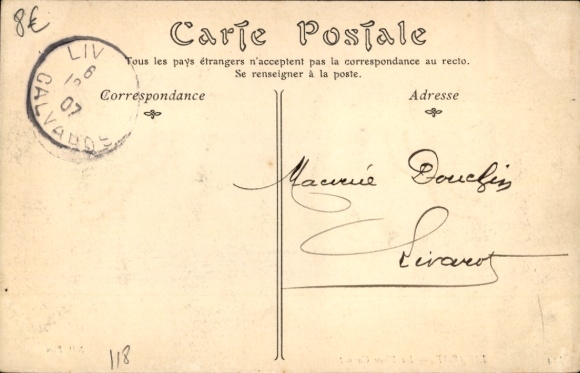 8€
Carte Postale
Tous les pays étrangers n'acceptent pas la correspondance au recto.
Se renseigner à la poste.
LIV
6
07
CALVADOS
Correspondance
Adresse
Livarot
118